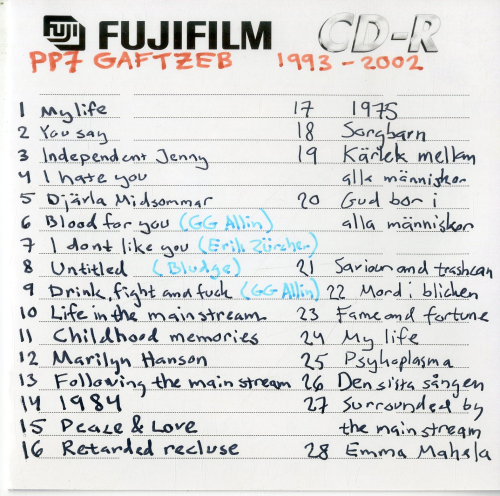 FUJI FUJIFILM CD-R
PP7 GAFTZEB 1993-2002
1 My life
2 You say
3 Independent Jenny
4 I hate you
5 Djärla Midsommar
6 Blood for you (GG Allin)
7 I dont like you (Erik Zürcher)
8 Untitled (Bludge)
9 Drink, fight and fuck (GG Allin)
10 Life in the mainstream
11 Childhood memories
12 Marilyn Hanson
13 Following the mainstream
14 1984
15 Peace & Love
16 Retarded recluse
17 1975
18 Sorgbarn
19 Kärlek mellan
alla människor
20 Gud bor i
alla människor
21 Saviour and trashcan
22 Mord i blicken
23 Fame and fortune
24 My life
25 Psykoplasma
26 Den sista sången
27 Surrounded by
the mainstream
28 Emma Mahala